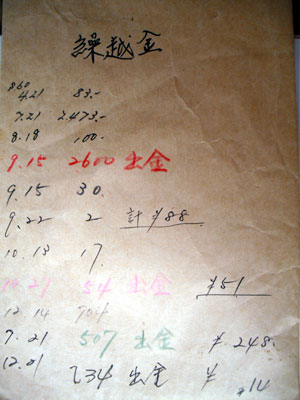 繰越金
860
4.21 83.-
7.21 2.473.-
8.18 100.-
9.15 2600 出金
9.15 30.
9.22 2 計 ¥88
10.18 17.
10.21 54 出金 ¥51
12.14 704
7.21 507 出金 ¥248.
12.21 234 出金 ¥ 214